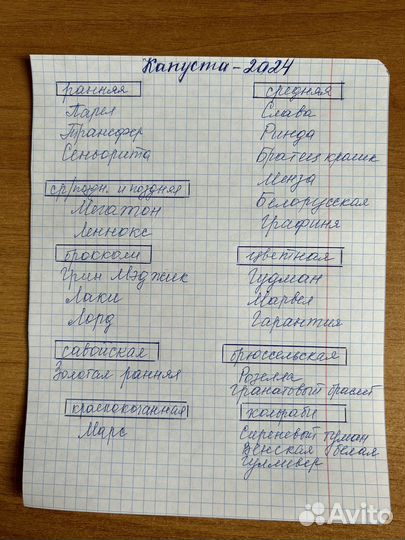 Капуста - 2024
ранняя
Парел
Трансфер
Сеньорита
ср/поздн. и поздняя
Мегатон
Леннокс
брокколи
Грин Мэджик
Лаки
Лорд
савойская
Золотая ранняя
краснокочанная
Марс
средняя
Слава
Ринда
Братец кролик
Менза
Белорусская
Графиня
цветная
Гудман
Марвел
Гарантия
брюссельская
Розелла
Гранатовый браслет
кольраби
Сиреневый туман
Венская белая
Гулливер
Avito